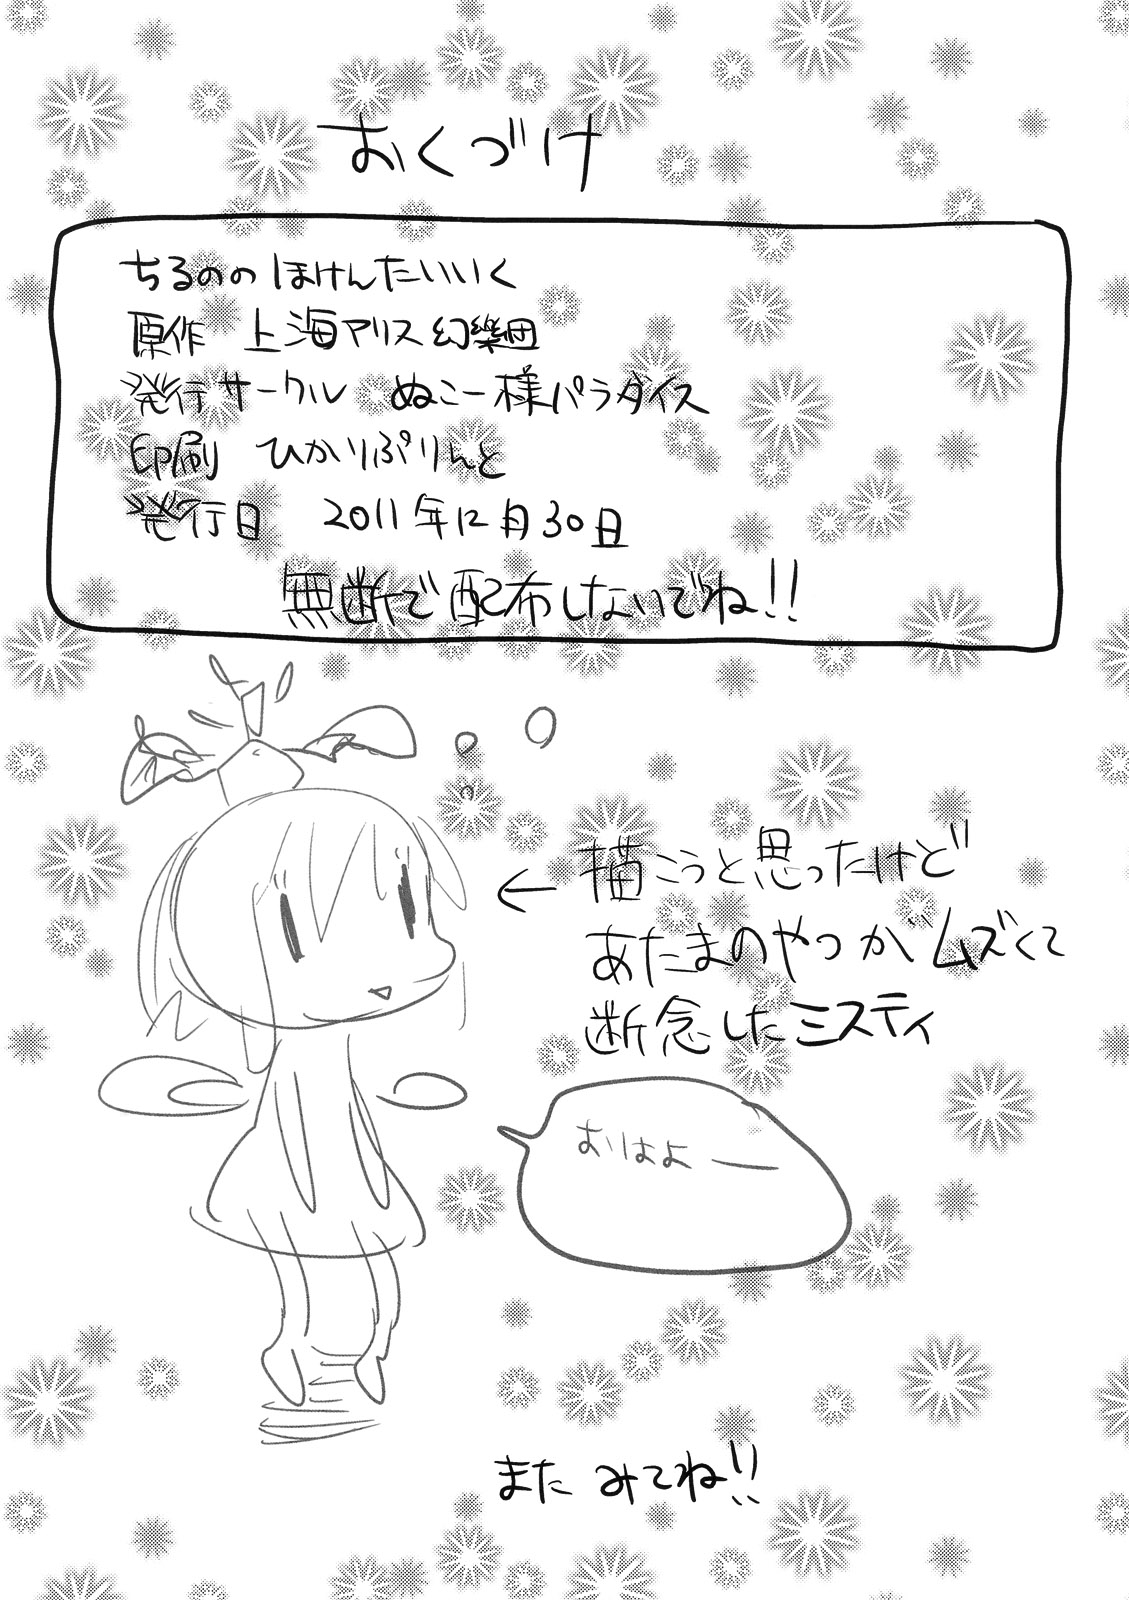 おくづけ
ちるのの ほけんたいいく
原作 上海アリス幻樂団
発行サークル ぬこー様パラダイス
印刷 ひかりぷりんと
発行日 2011年12月30日
無断で配布しないでね!!
← 描こうと思ったけど
あたまのやつがムズくて
断念したミスティ
おはよー
また みてね!!